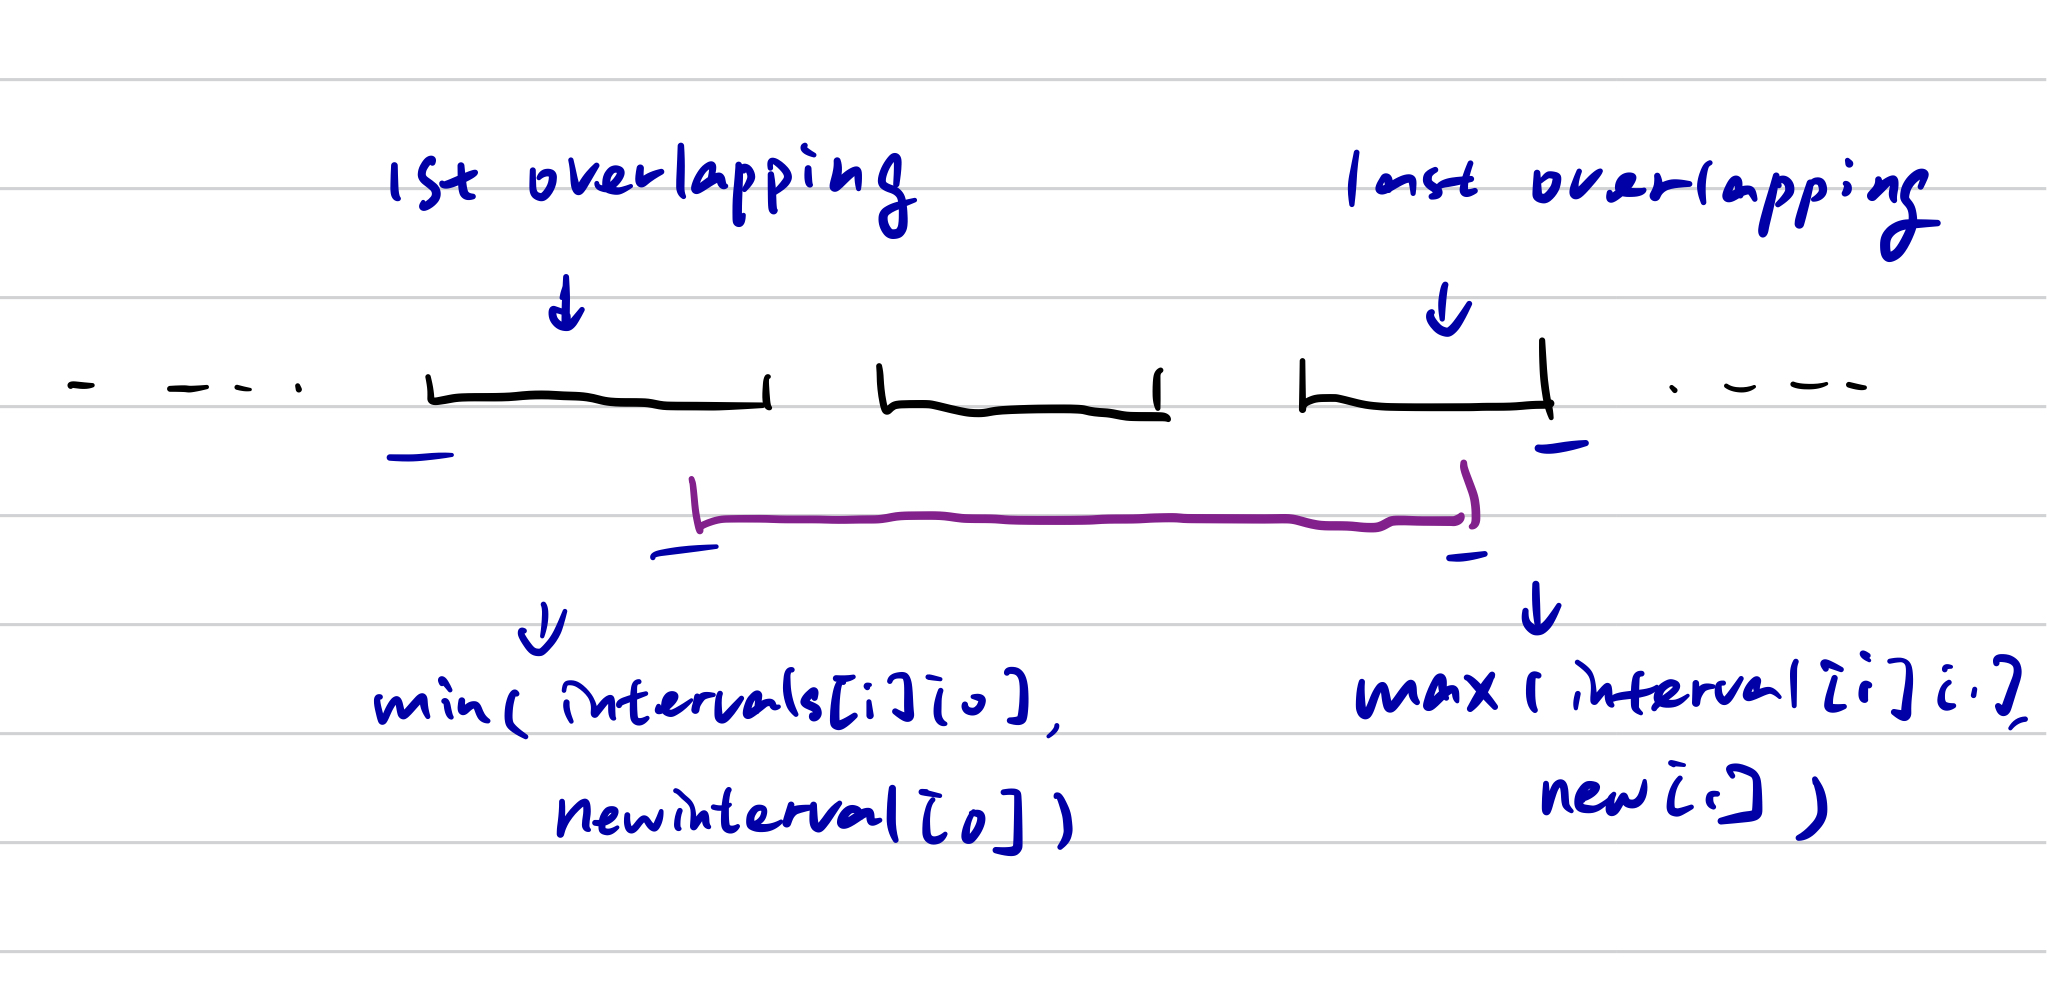 1st overlapping
last overlapping
min( intervals[i][0],
newinterval[0])
max(interval[i][1],
new[1])